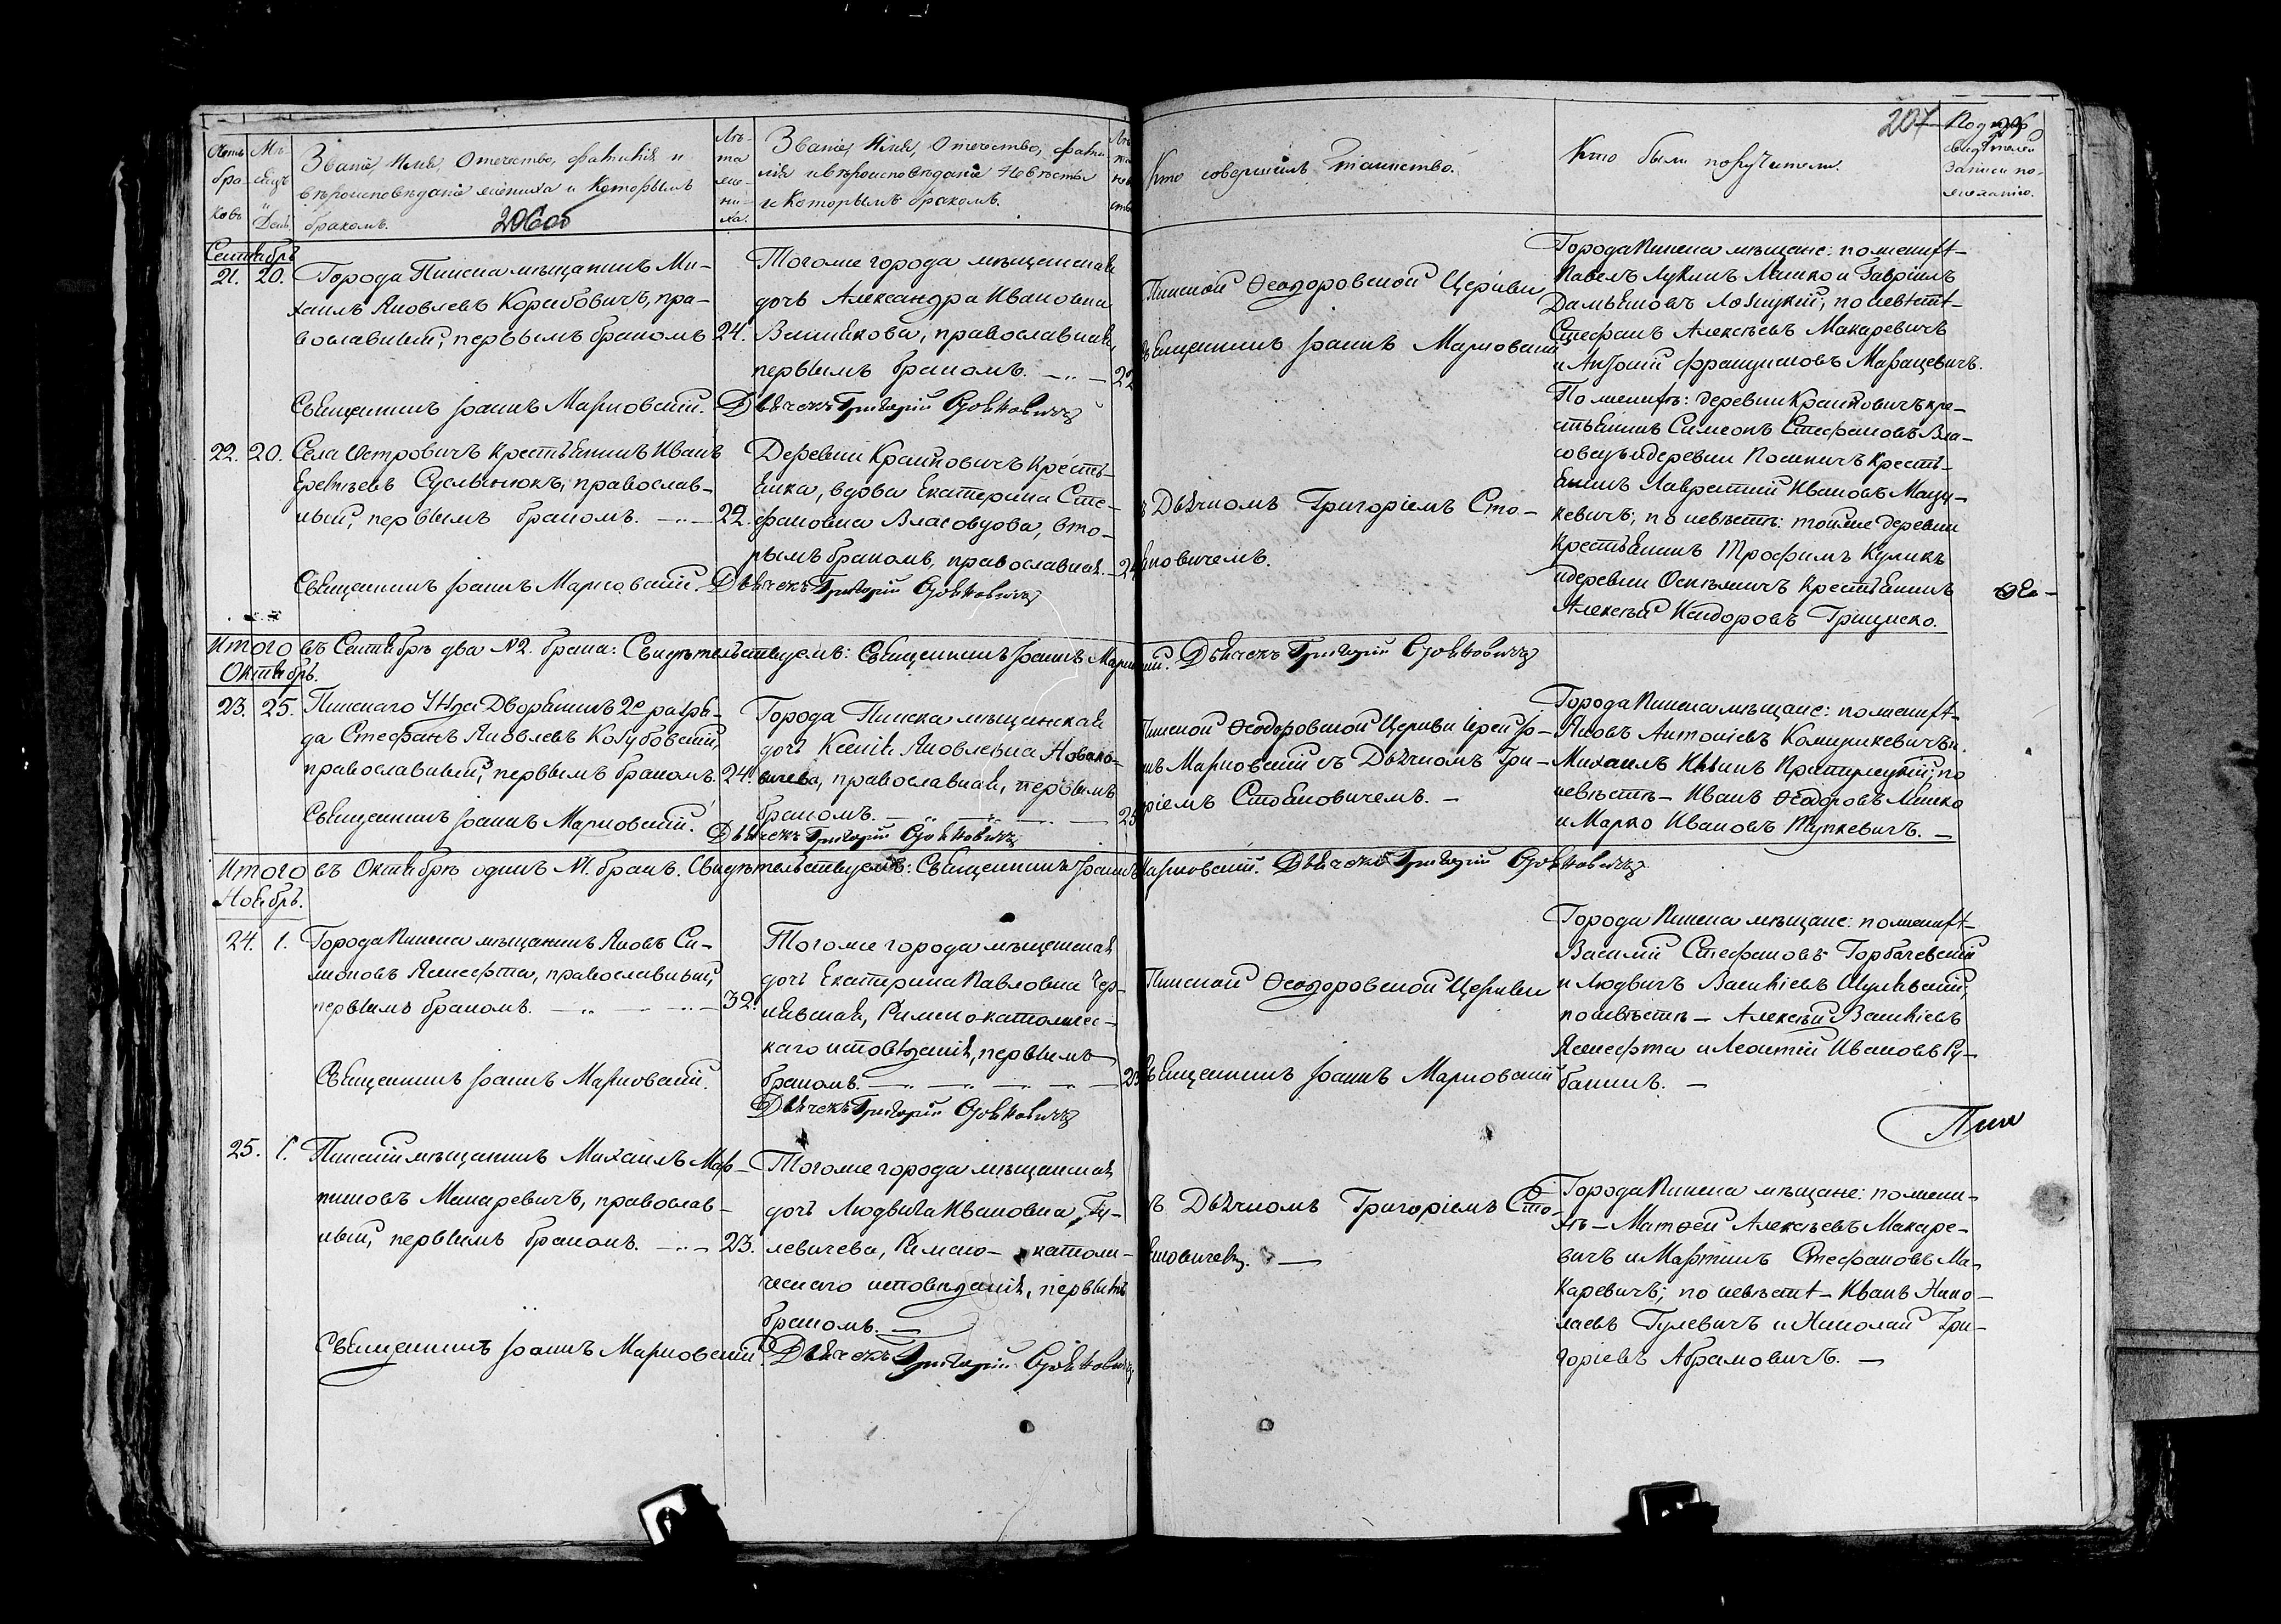 Счетъ бра-ковъ
Мѣ-сяцъ и День.
Званіе, Имя, Отечество, фамилія и
вѣроисповѣданіе жениха и Которымъ
бракомъ.
206об
Лѣ-та же-ни-ха.
Званіе, Имя, Отечество, фами
лія и вѣроисповѣданіе Невѣсты
и Которымъ бракомъ.
Кто совершилъ таинство.
Кто были поручители.
207
записи по
желанію.
Сентябрь
21. 20.
Города Пинска мѣщанинъ Ми-
хаилъ Яковлевъ Корибовичъ, пра-
вославный, первымъ бракомъ 24.
Священникъ Іоаннъ Марковскій.
Тогоже города мѣщанская
дочь Александра Ивановна
православная,
первымъ бракомъ. — 22
Дьячекъ Григорій Стояновичъ
Пинской Ѳеодоровской Церкви
Священникъ Іоаннъ Марковскій
Города Пинска мѣщане: по женихѣ-
Павелъ Лукинъ Ляшко и Гавріилъ
Дамьяновъ Лозицкій, по невѣстѣ-
Стефанъ Алексѣевъ Макаревичъ
и Антоній Францишковъ Марацевичъ.
22. 20.
Села Островичъ крестьянинъ Иванъ
православ-
ный, первымъ бракомъ. — 22.
Священникъ Іоаннъ Марковскій.
Деревни Крайновичъ Кресть-
янка, вдова Екатерина Сте-
фановна Власовцова, вто-
рымъ бракомъ, православная.
Дьячекъ Григорій Стояновичъ
съ Дьячкомъ Григоріемъ Сто-
яновичемъ.
По женихѣ: деревни Крайновичъ кре-
стьянинъ Симеонъ Стефановъ Вла-
совецъ и деревни Пошничъ кресть-
янинъ Лаврентій Ивановъ Маце-
кевичъ; по невѣстѣ: тойже деревни
крестьянинъ Трофимъ Куликъ
и деревни крестьянинъ
Алексѣй Исидоровъ Грицко.
Итого въ Сентябрѣ два №2. брака: Свидѣтельствуемъ: Священникъ Іоаннъ Марковскій. Дьячекъ Григорій Стояновичъ
Октябрь.
23. 25.
Пинскаго Уѣзда Дворянинъ 2го разря-
да Стефанъ Яковлевъ Колбовскій,
православный, первымъ бракомъ. 24.
Священникъ Іоаннъ Марковскій.
Города Пинска мѣщанская
дочь Ксенія Яковлевна Новако-
вичева, православная, первымъ
бракомъ. — 23
Дьячекъ Григорій Стояновичъ
Пинской Ѳеодоровской Церкви Іерей Іо-
аннъ Марковскій съ Дьячкомъ Гри-
горіемъ Стояновичемъ. —
Города Пинска мѣщане: по женихѣ-
Яковъ Антоніевъ и
Михаилъ Ильинъ по
невѣстѣ — Иванъ Ѳеодоровъ Ляшко
и Марко Ивановъ Тупкевичъ. —
Итого въ Октябрѣ одинъ №1. бракъ. Свидѣтельствуемъ: Священникъ Іоаннъ Марковскій. Дьячекъ Григорій Стояновичъ
Ноябрь.
24. 1.
Города Пинска мѣщанинъ Яковъ Си-
моновъ Яшефта, православный,
первымъ бракомъ. — 32.
Священникъ Іоаннъ Марковскій.
Тогоже города мѣщанская
дочь Екатерина Павловна Чер-
нявская, Римскокатоличес-
каго исповѣданія, первымъ
бракомъ. —
Дьячекъ Григорій Стояновичъ
Пинской Ѳеодоровской Церкви
Священникъ Іоаннъ Марковскій
Города Пинска мѣщане: по женихѣ-
Василій Стефановъ Горбачевскій
и Людвигъ Васильевъ Шулявскій,
по невѣстѣ — Алексѣй Васильевъ
Яшефта и Леонтій Ивановъ Ру-
банинъ. —
Пин
25. 1.
Пинскій мѣщанинъ Михаилъ Мар-
тиновъ Макаревичъ, православ-
ный, первымъ бракомъ. — 23.
Священникъ Іоаннъ Марковскій.
Тогоже города мѣщанская
дочь Людвига Ивановна Гу-
левичева, Римско-католи-
ческаго исповѣданія, первымъ
бракомъ. —
Дьячекъ Григорій Стояновичъ
съ Дьячкомъ Григоріемъ Сто-
яновичемъ. —
Города Пинска мѣщане: по жени-
хѣ — Матѳей Алексѣевъ Макаре-
вичъ и Мартинъ Стефановъ Ма-
каревичъ; по невѣстѣ — Иванъ Нико-
лаевъ Гулевичъ и Николай Гри-
горіевъ Абрамовичъ. —